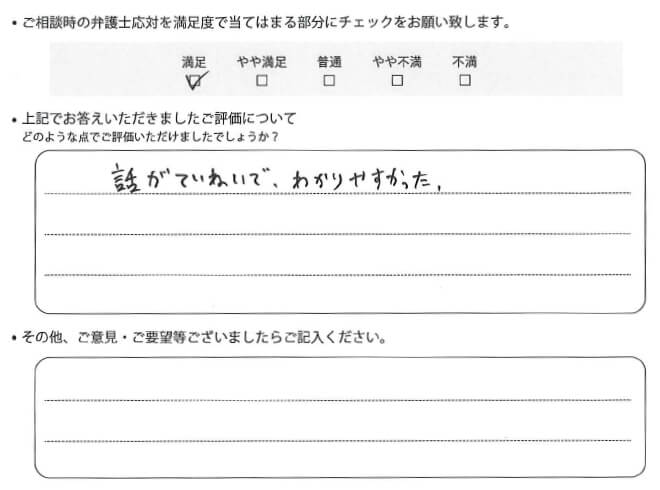 • ご相談時の弁護士応対を満足度で当てはまる部分にチェックをお願い致します。
満足 やや満足 普通 やや不満 不満
☑ □ □ □ □
• 上記でお答えいただきましたご評価について
どのような点でご評価いただけましたでしょうか？
話がていねいで、わかりやすかった。
• その他、ご意見・ご要望等ございましたらご記入ください。